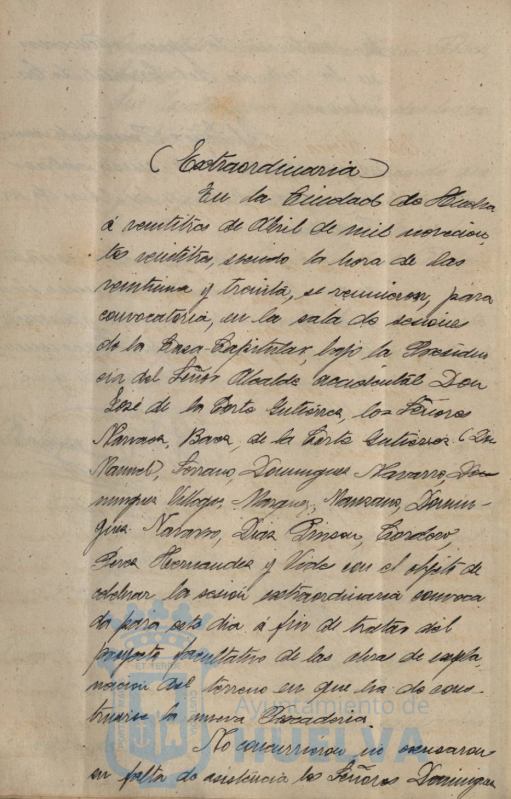 (Extraordinaria)
En la Ciudad de Huelva
á veintitres de Abril de mil novecien
tos veintitres, siendo la hora de las
veintiuna y treinta, se reunieron, para
convocatoria, en la sala de sesiones
de la Casa Capitular, bajo la Presiden
cia del Señor Alcalde accidental Don
José de la Corte Gutiérrez, los Señores
Narvaez, Baez, de la Corte Gutiérrez (Don
Manuel), Serrano, Dominguez Navarro, Do-
minguez Villegas, Marquez, Manzano, Domin-
guez Navarro, Diaz Pinzon, Cordero,
Perez Hernandez y Vides con el objeto de
celebrar la sesion extraordinaria convoca
da para este dia á fin de tratar del
proyecto facultativo de las obras de expla
nacion del terreno en que ha de cons-
truirse la nueva Pescaderia.
No concurrieron ni excusaron
su falta de asistencia los Señores Dominguez
Ayuntamiento de
HUELVA